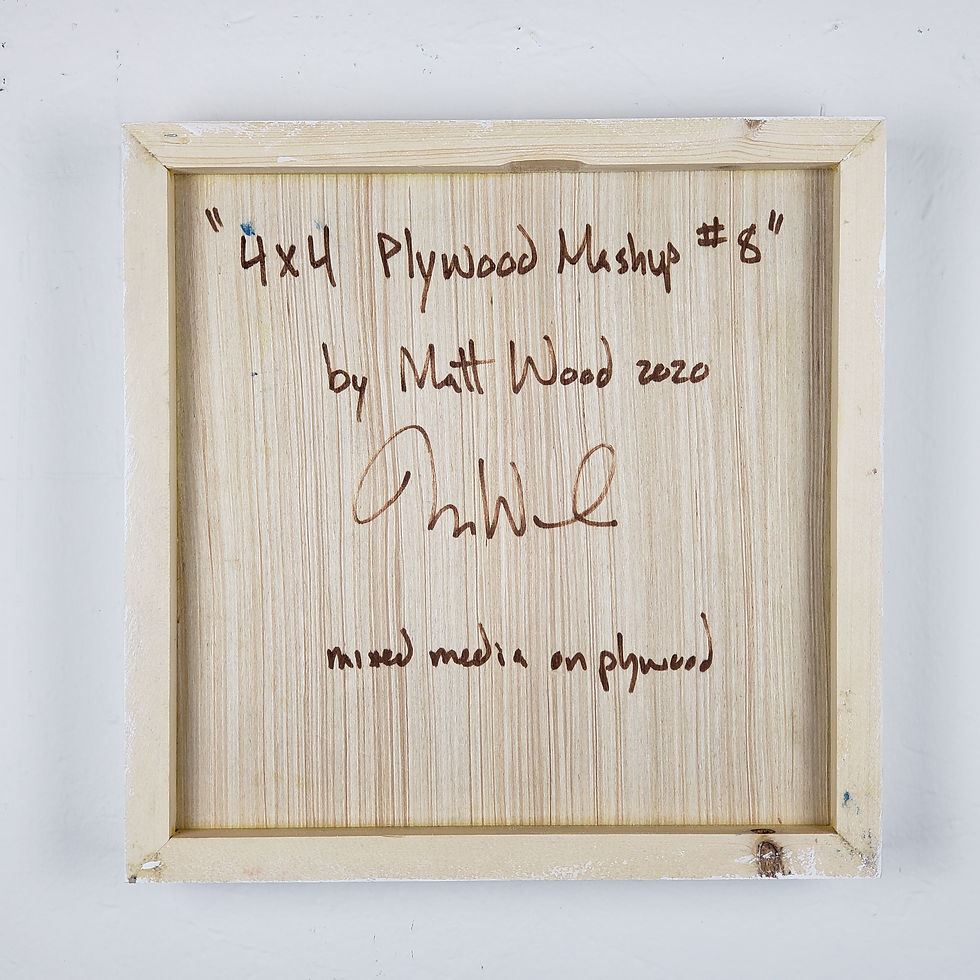 "4x4 Plywood Mashup #8"
by Matt Wood 2020
mixed media on plywood